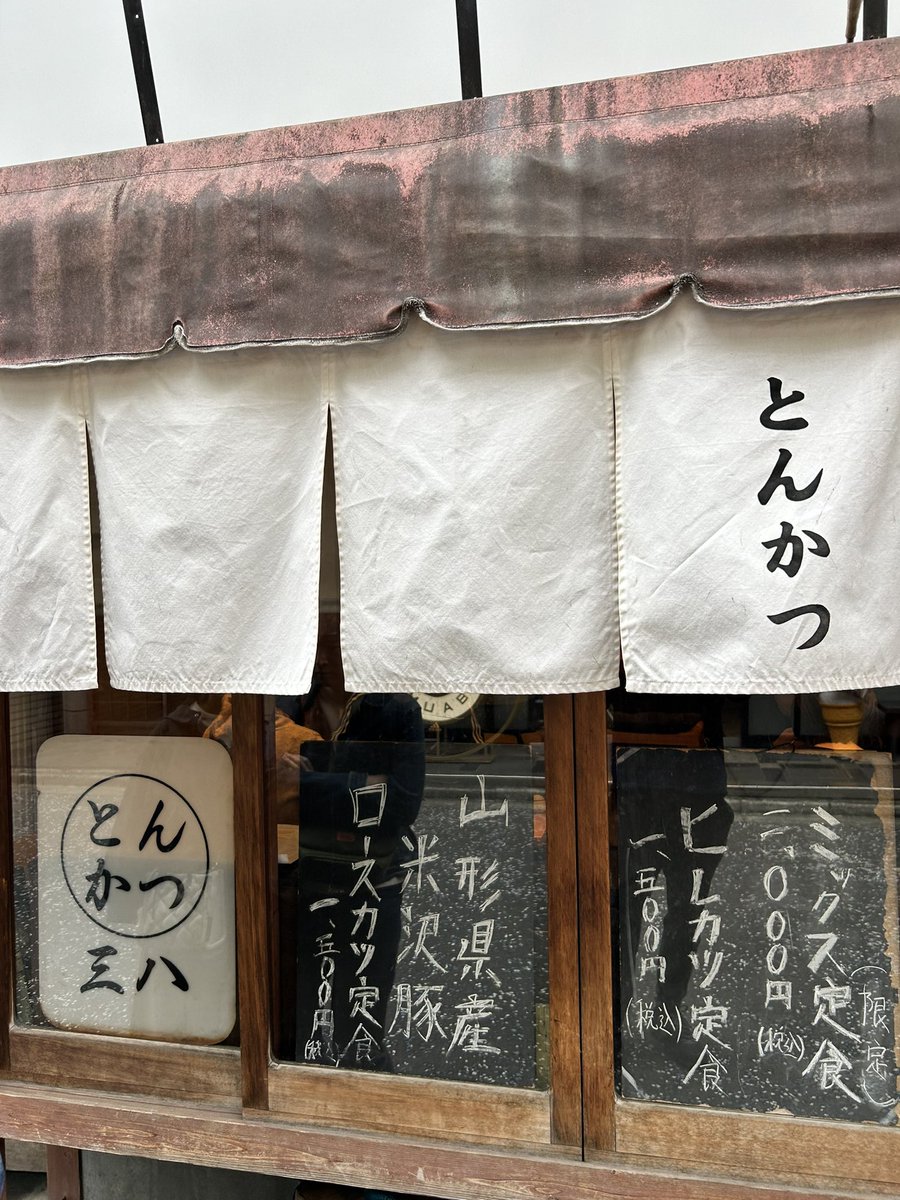 とんかつ
とん
かつ
三八
山形県産
米沢豚
ロースカツ定食
一、五〇〇円(税込)
ミックス定食(限定)
二、〇〇〇円(税込)
ヒレカツ定食
一、五〇〇円(税込)
UAB